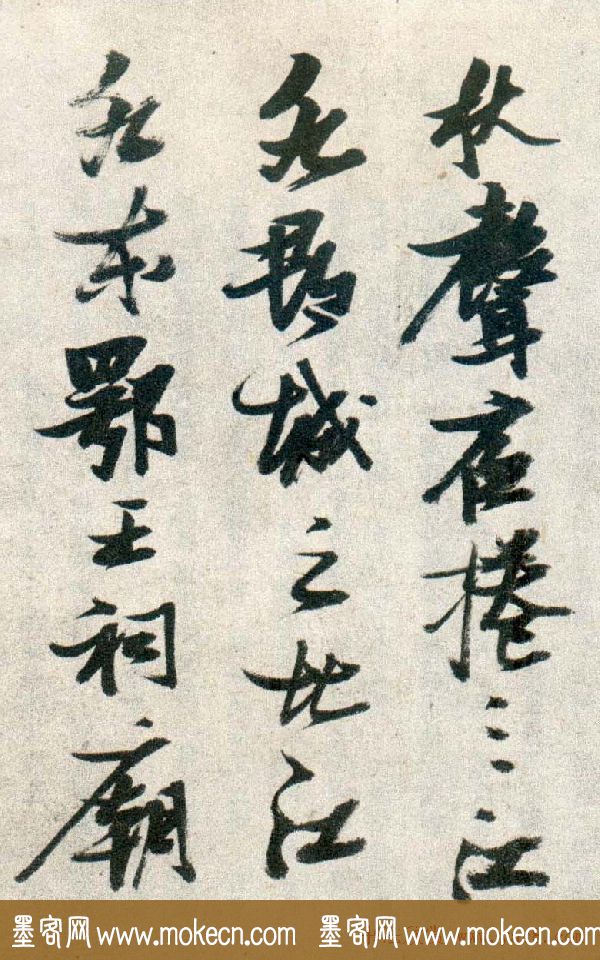 秋聲捲三江
水城之北江
水東鄂王祠廟
墨客网 www.mokecn.com 墨客网 www.mokecn.com